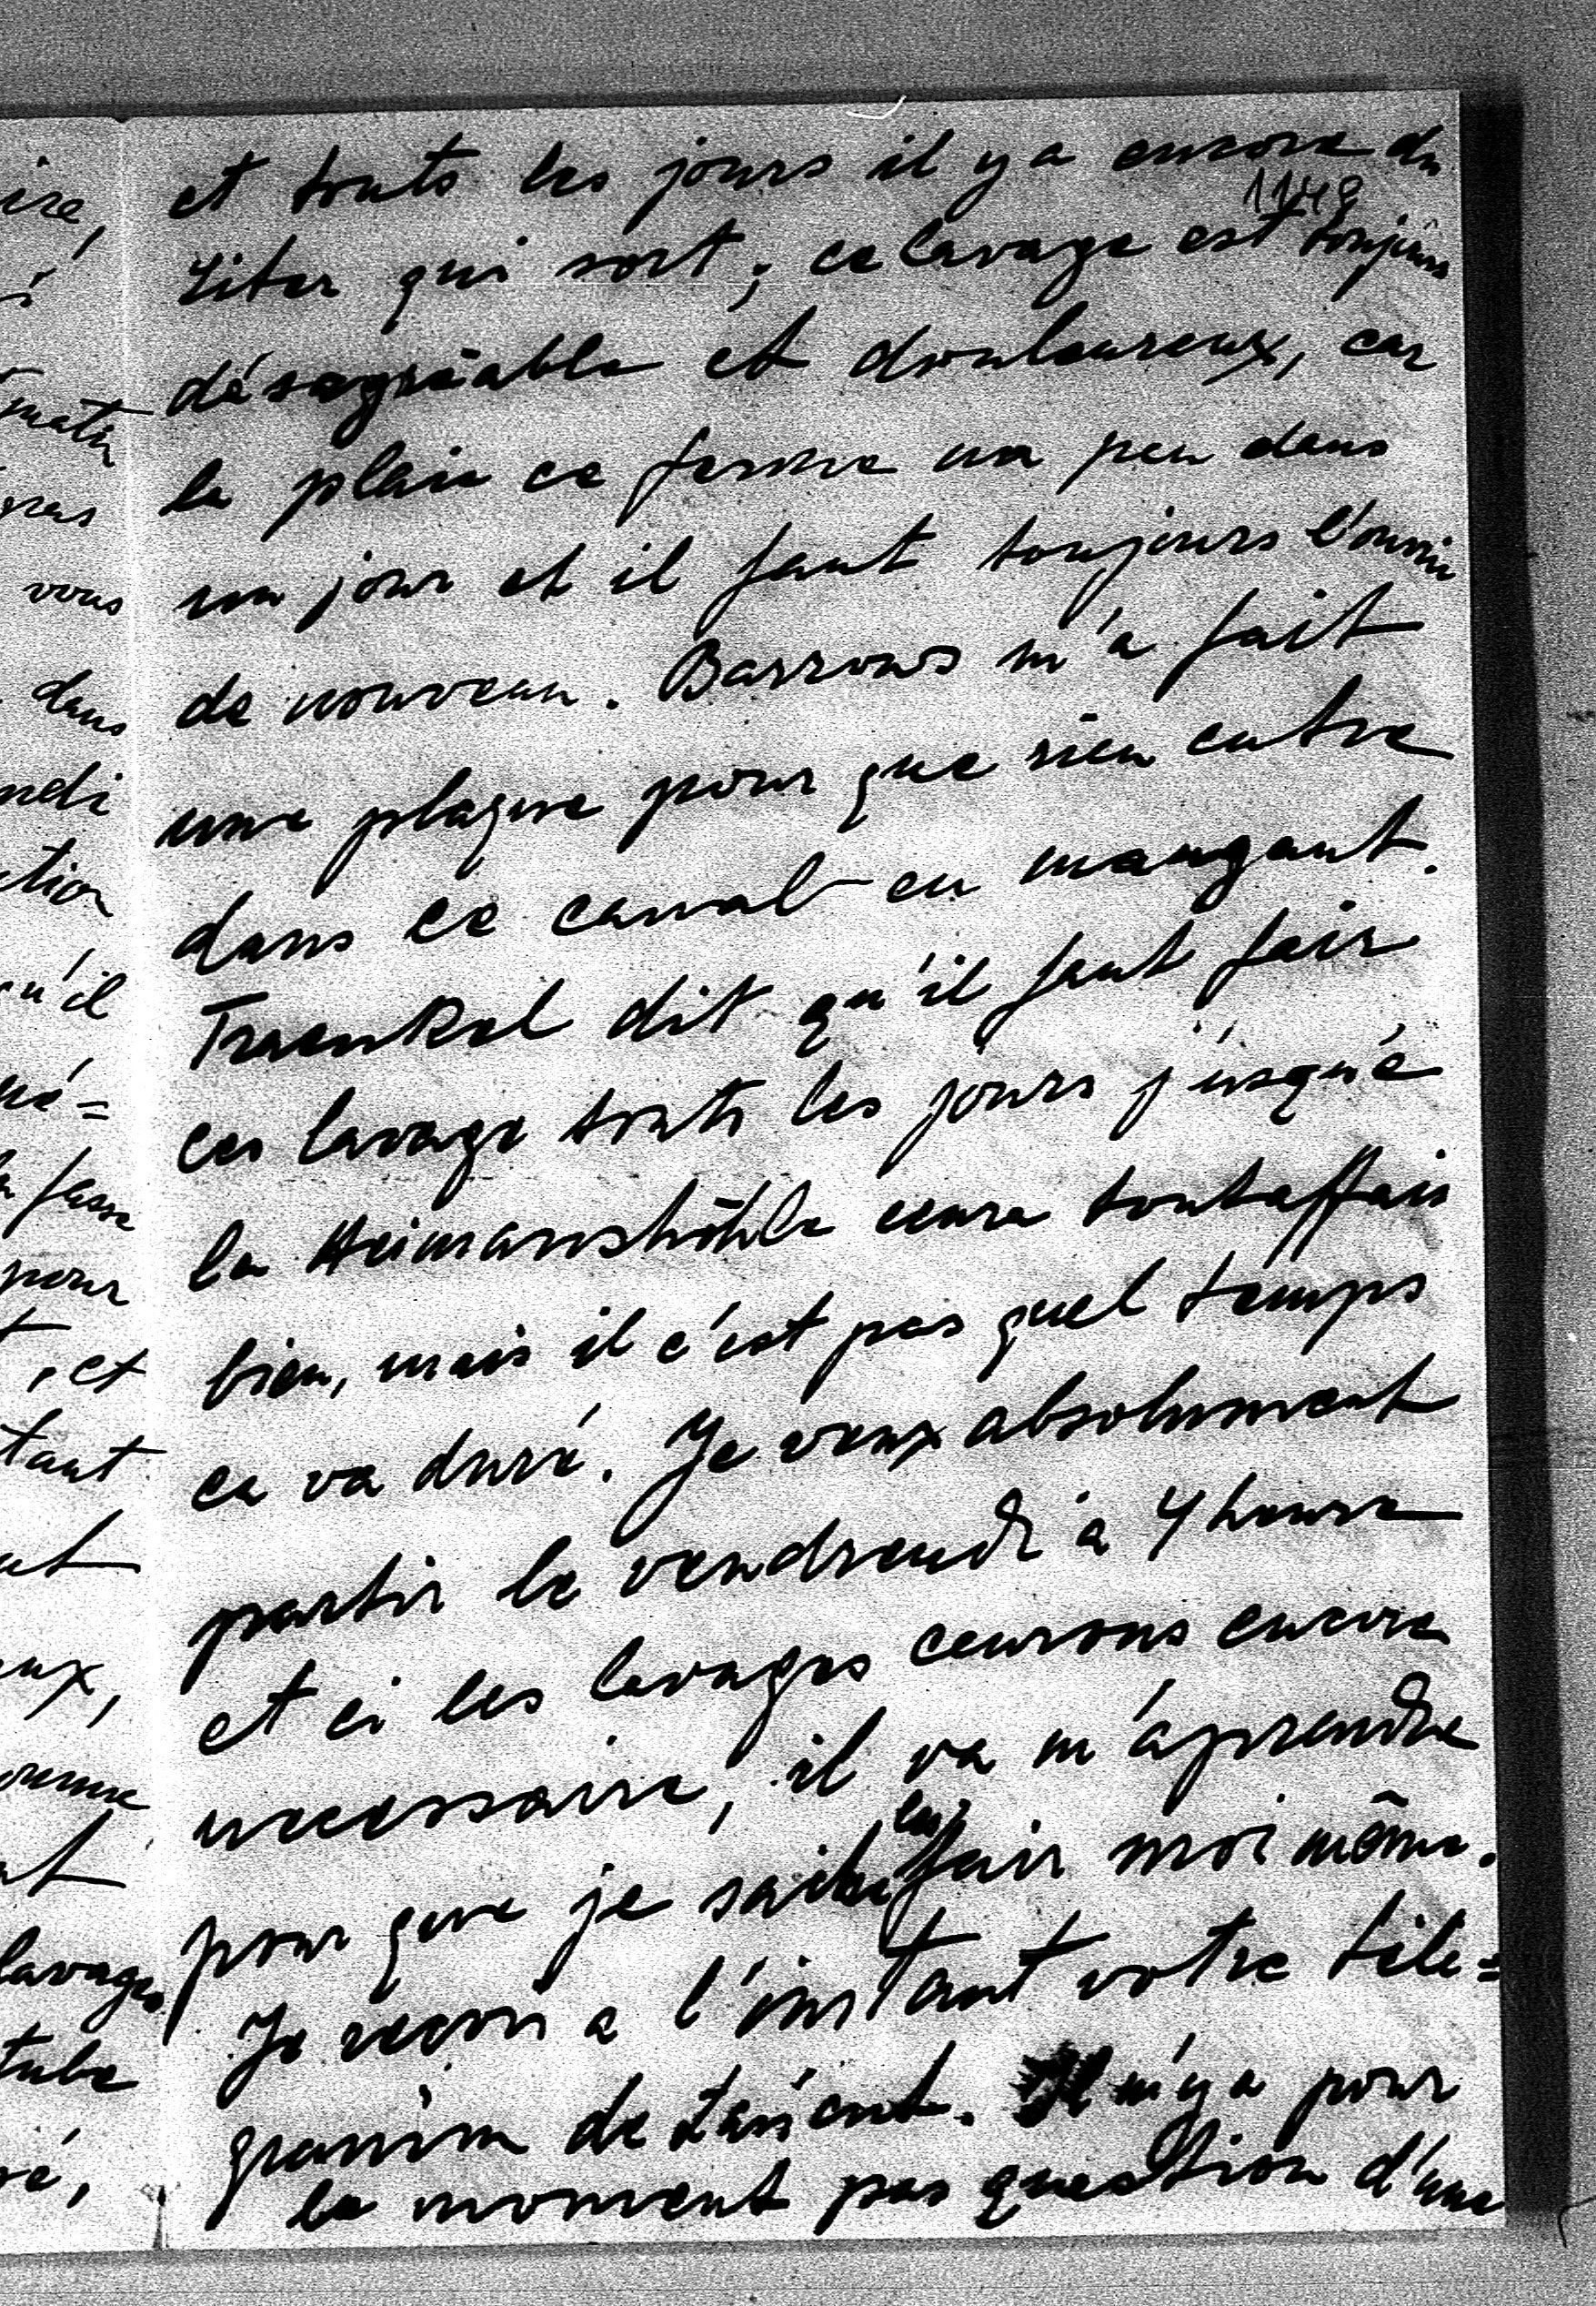 et touts les jours il y a encore du
1148
Liter qui sort, ce lavage est toujours
désagréable et douloureux, car
la plaie ce ferme un peu dans
un jour et il faut toujours l'ouvrir
de nouveau. Barrows m'a fait
une plaque pour que rien entre
dans ce canal en mangant.
Traenkel dit qu'il faut fair
ces lavage touts les jours j'usqu'e
la Heimarshöhle cera toutaffais
bien, mais il c'est pas quel temps
ca va duré. Je veux absolument
partir le vendredi à 4 heure
et ci les lavages cerons encore
necessaire, il va m'áprendre
pour que je sache les fair moi même.
Je recois a l'instant votre télé=
gramm de Lausent. Il n'y a pour
le moment pas question d'une
ire,
matin
gras
vous
dans
ndi
ction
qu'il
né=
la fasse
pour
, et
tant
ut
eux,
lavages
tube
ré,